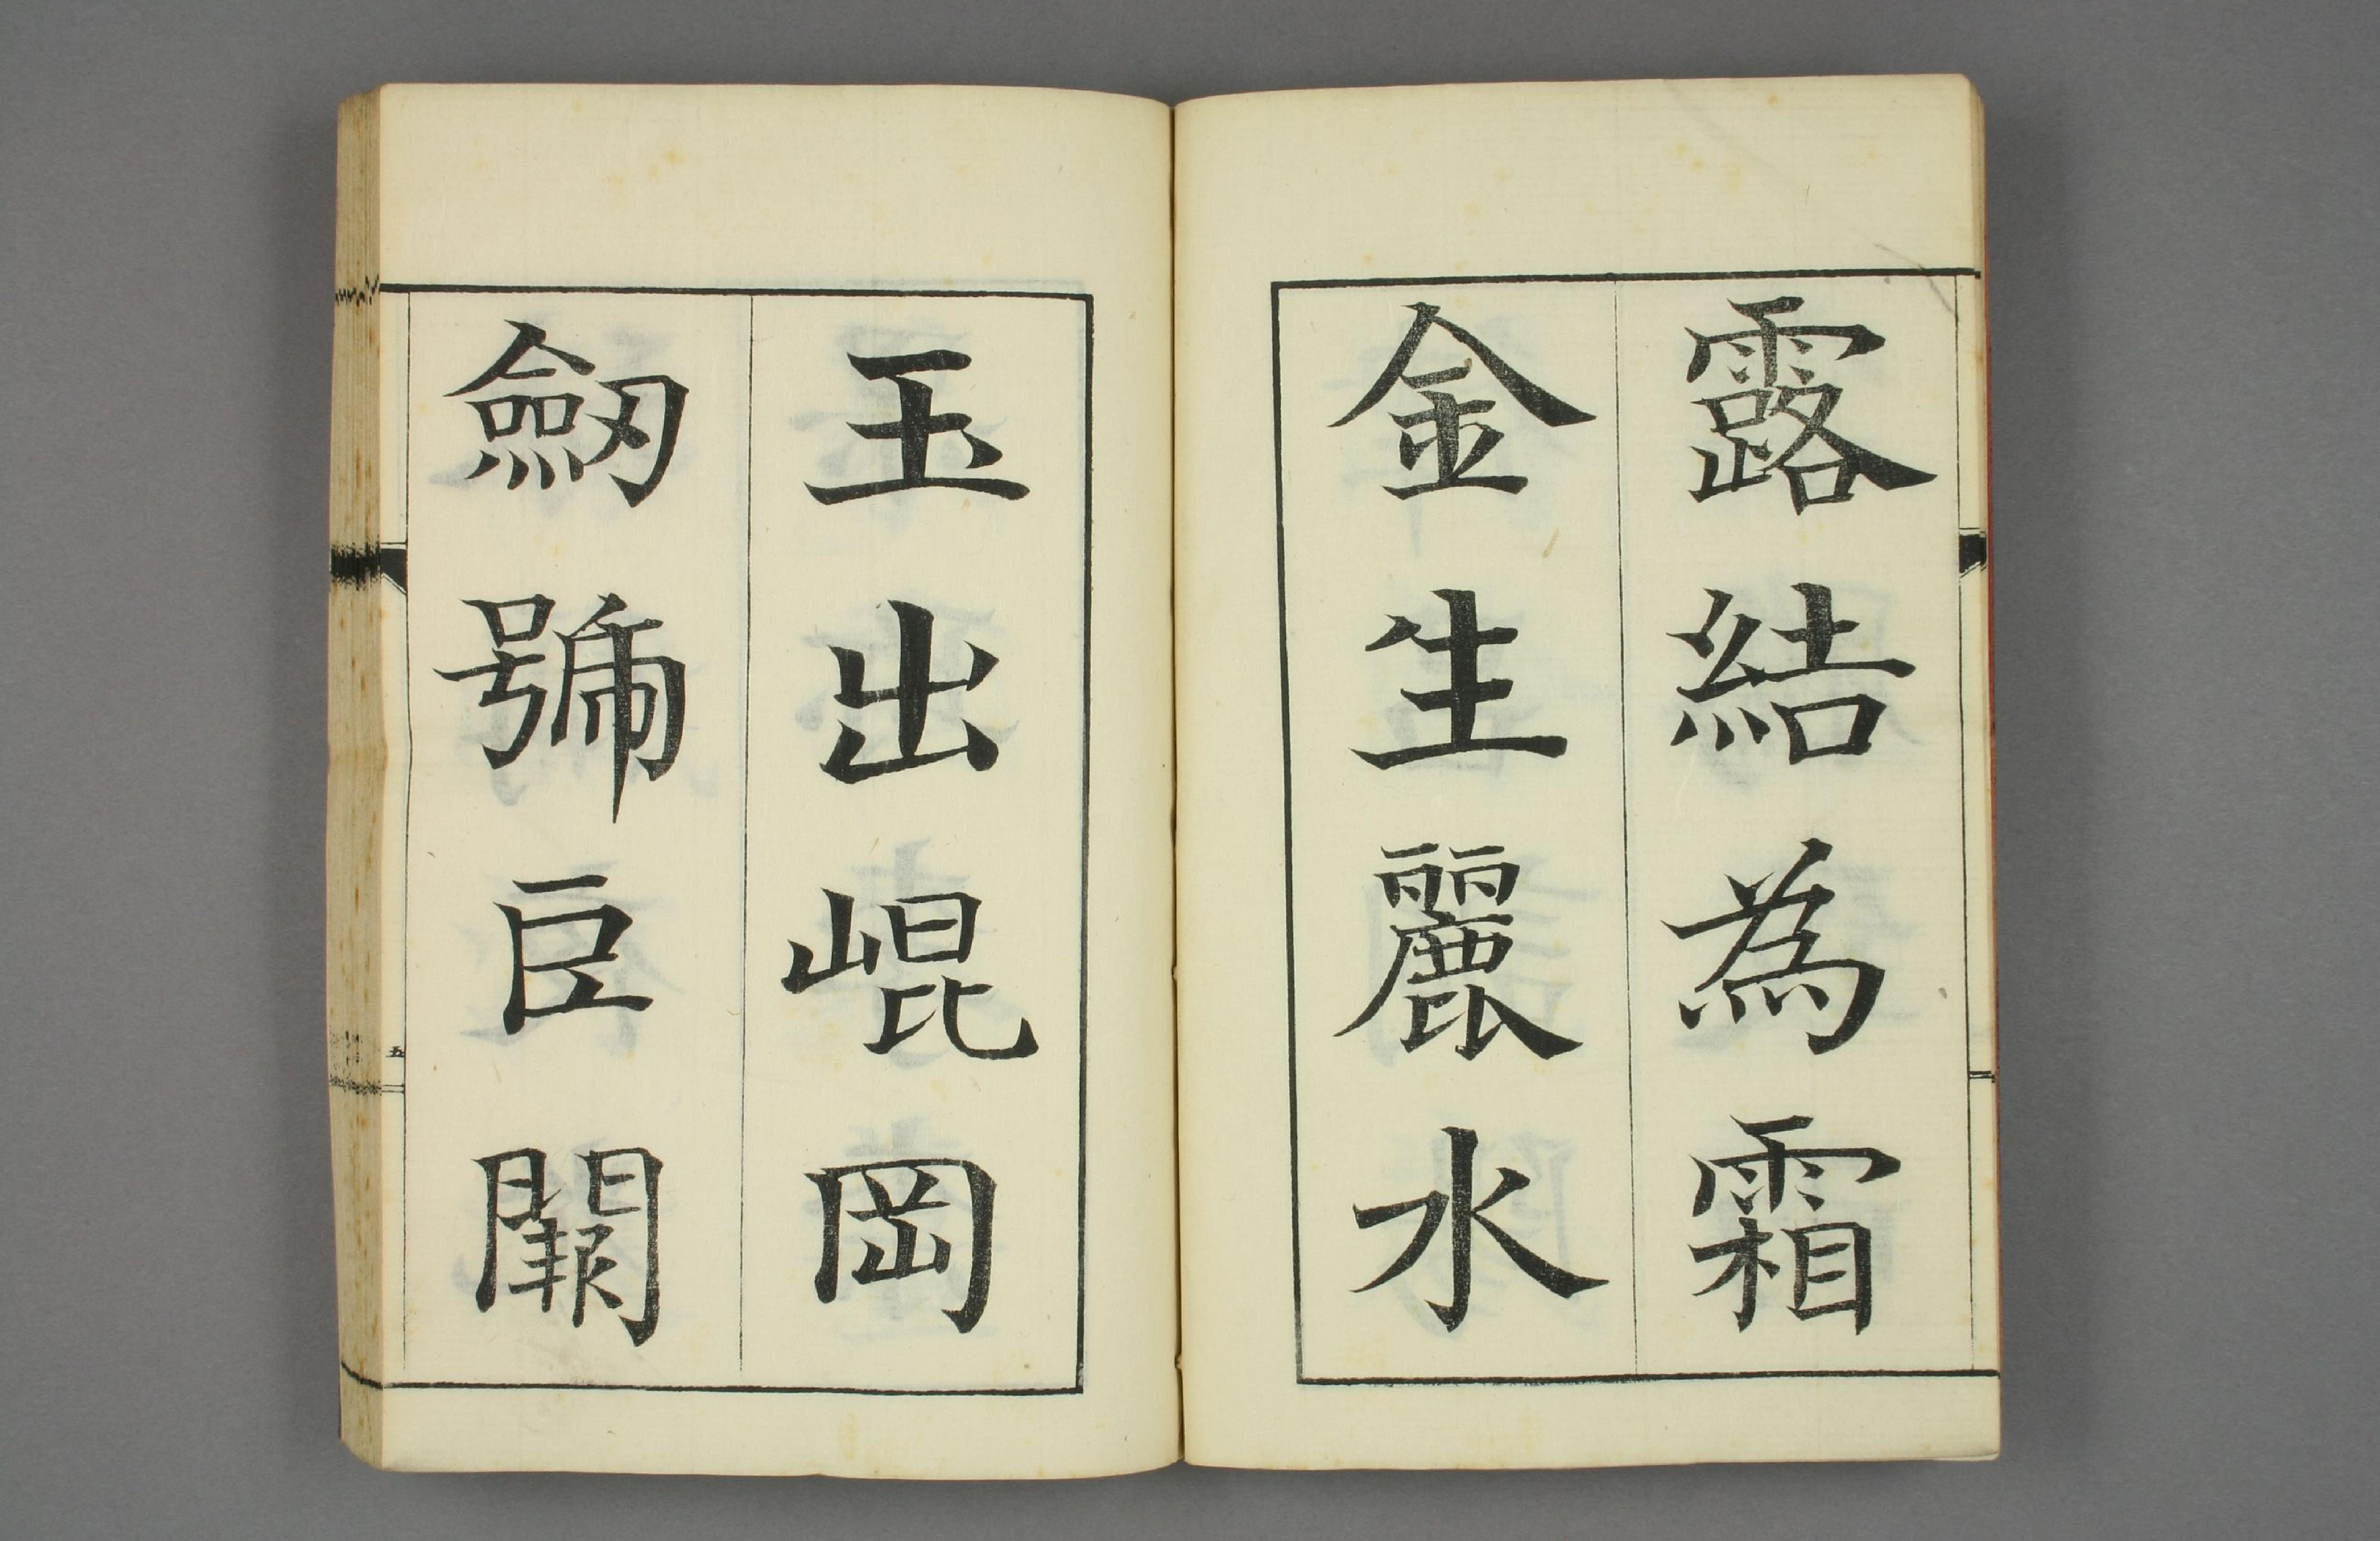 露結為霜
金生麗水
玉出崐岡
劒號巨闕
五